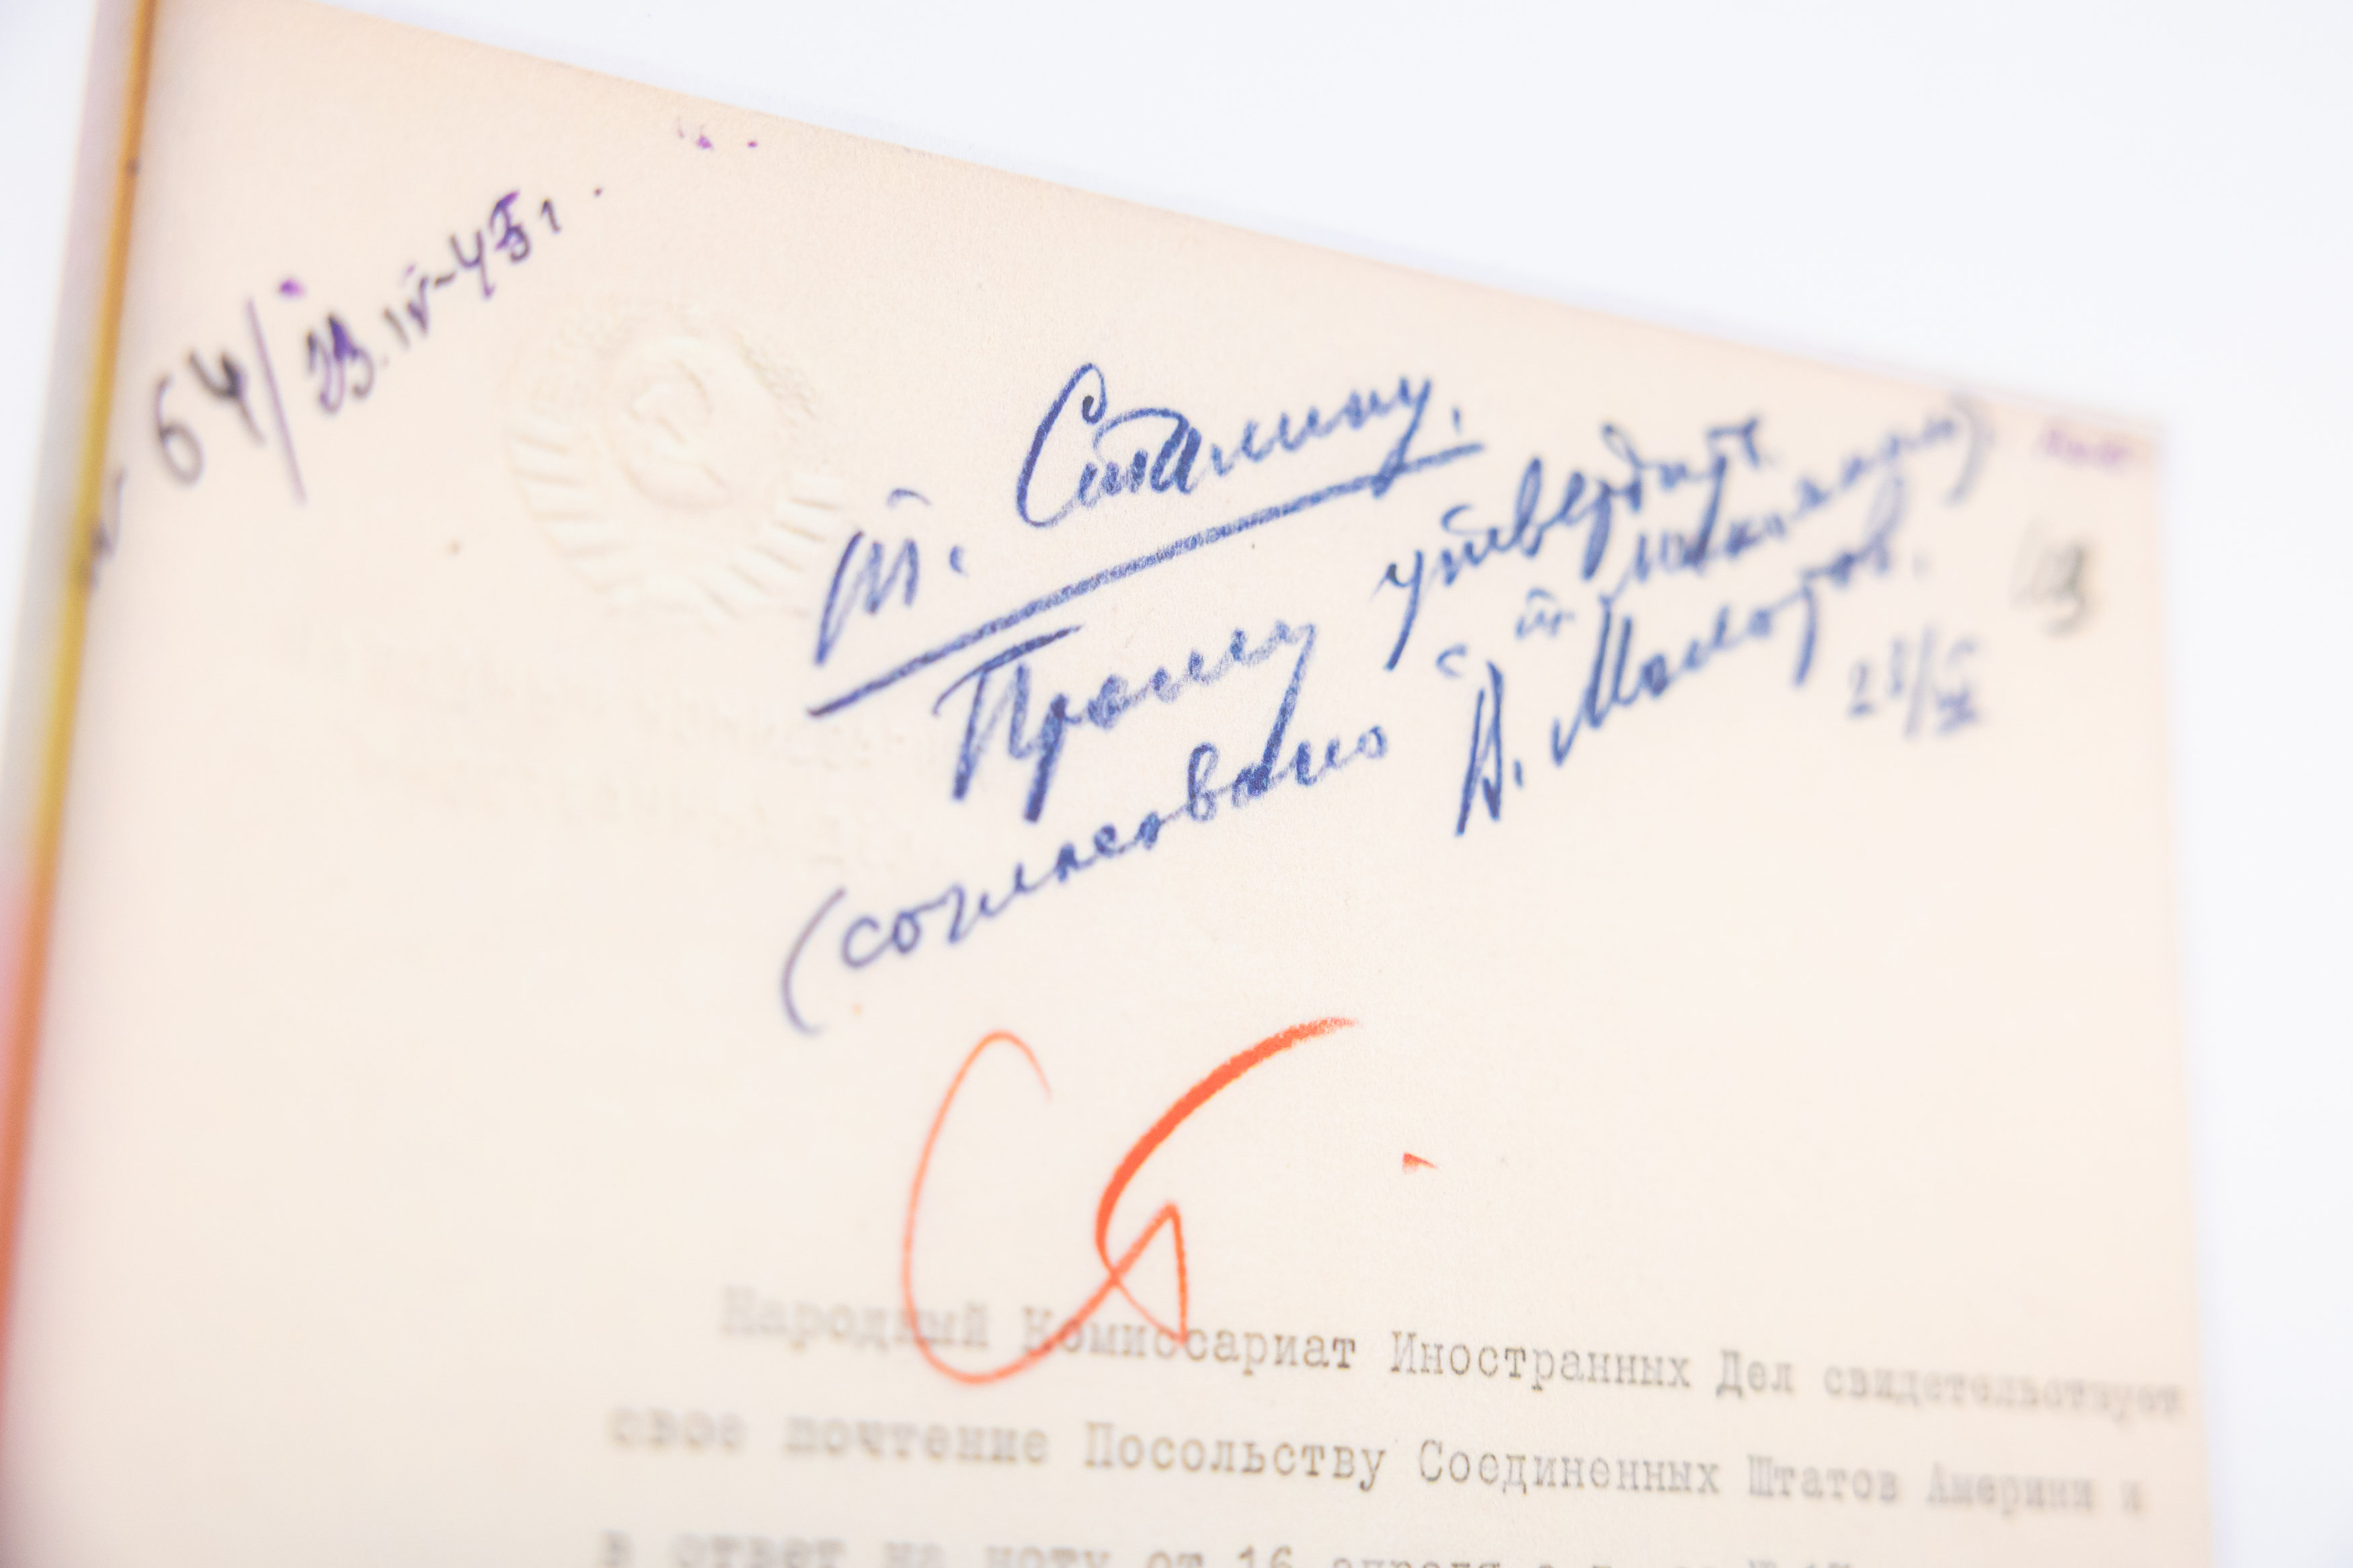 64/23.IV-45г.
т. Сталину.
Прошу утвердить
(согласовано с т. Микояном)
В. Молотов.
Народный Комиссариат Иностранных Дел свидетельствует
свое почтение Посольству Соединенных Штатов Америки и
в ответ на ноту от 16 апреля